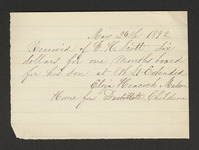 May 26th 1892
Received of W. H. Scott Six
dollars for one months board
for his son at
Eliza Heacock Matron
Home for Destitute Children